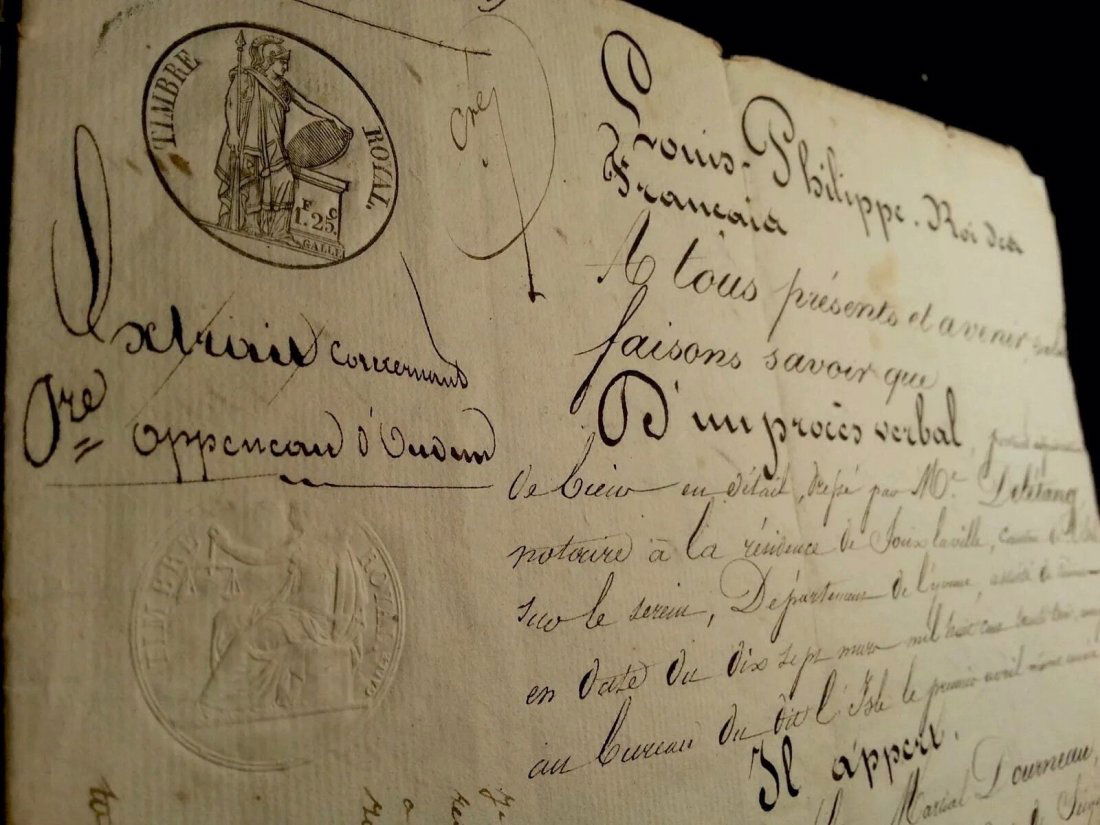 TIMBRE ROYAL
F C
1.25.
GALLE
Extrait concernant
Pre
Oppeneau d'Oudun
TIMBRE ROYAL
Louis-Philippe. Roi des
Français
A tous présents et avenir, salut
faisons savoir que
D'un procès verbal
de biens en détail, dressé par Me. Delétang
notaire à la résidence de Joux laville, canton de l'Isle
sur le serein, Département de l'yonne,
en date du dix sept mars mil huit cent
au bureau du dit l'Isle le premier avril même année
Il appert.
Martial Dourneau,